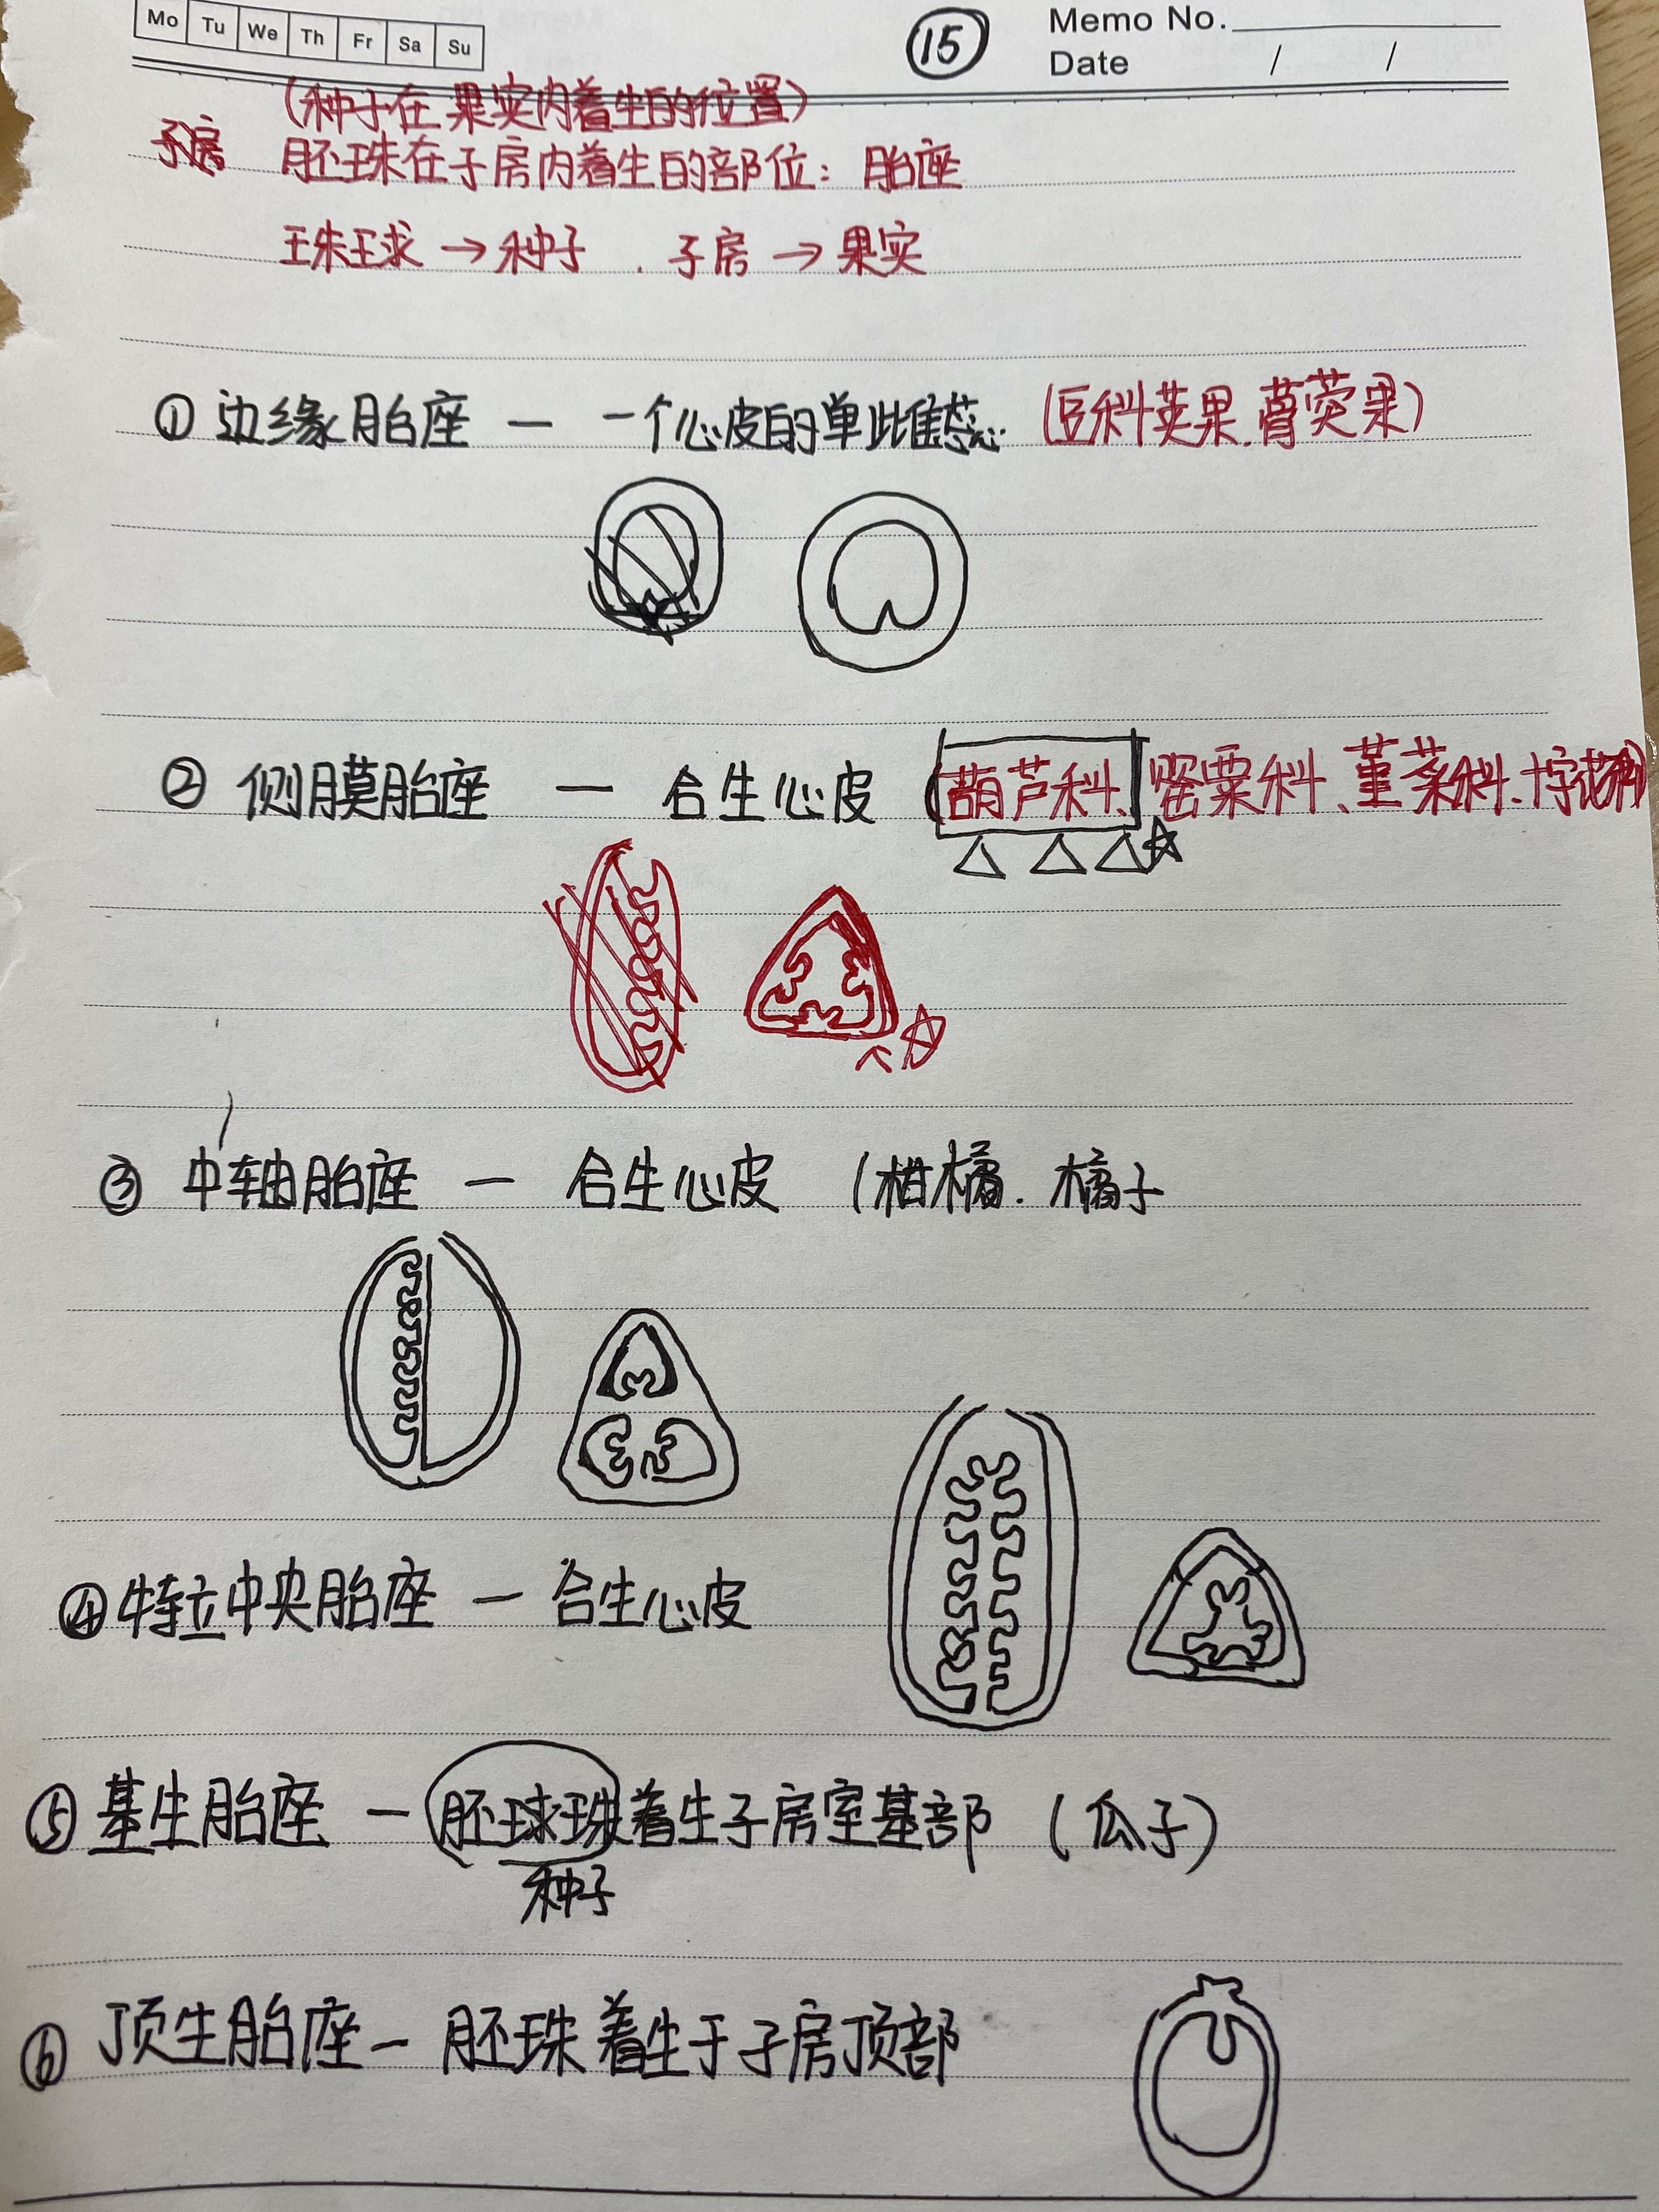 Mo Tu We Th Fr Sa Su
15 Memo No.
Date / /
(种子在果实内着生的位置)
子房 胚珠在子房内着生的部位：胎座
珠球→种子 . 子房→果实
① 边缘胎座 — 一个心皮的单雌蕊 (豆科荚果.蓇荚果)
② 侧膜胎座 — 合生心皮 (葫芦科、罂粟科、堇菜科、十字花科)
③ 中轴胎座 — 合生心皮 (柑橘. 橘子
④ 特立中央胎座 — 合生心皮
⑤ 基生胎座 — 胚球珠着生子房室基部 (瓜子)
种子
⑥ 顶生胎座 — 胚珠着生于子房顶部